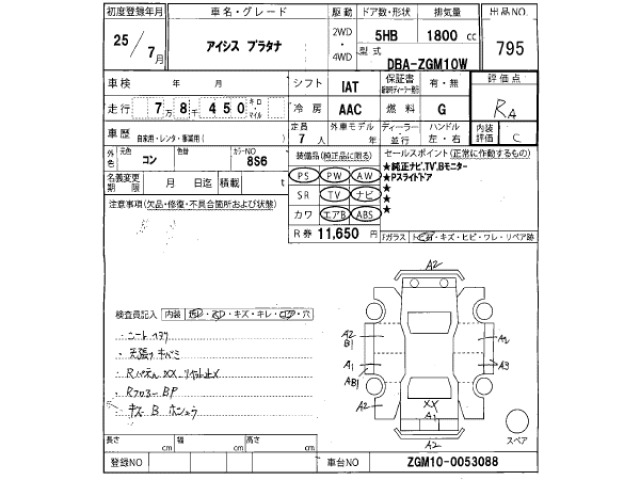 初度登録年月 車名・グレード 駆動 ドア数・形状 排気量 出品NO.
25/7月 アイシス プラタナ 2WD・4WD 5HB 1800 cc 795
型式 DBA-ZGM10W
車検 年 月 シフト IAT 保証書 有・無 評価点
走行 7万8千450 キロ・マイル 冷房 AAC 燃料 G RA
車歴 自家用・レンタ・事業用( ) 定員 7人 外車モデル 年 ディーラー・並行 ハンドル 左・右 内装評価 C
外色 元色 コン 色替 カラーNO 8S6 装備品(純正品に限る) セールスポイント(正常に作動するもの)
名義変更期限 月 日迄 積載 t PS PW AW ★純正ナビ,TV,Bモニター
注意事項(欠品・修復・不具合箇所および状態) SR TV ナビ ★Pスライドドア
カワ エアB ABS ★
★
★
R券 11,650 円 Fガラス トビ石・キズ・ヒビ・ワレ・リペア跡
検査員記入 内装 ・キズ・キレ・コゲ・穴
・シートヨゴレ
・天張りキバミ
・Rフロアー BP
・キズ B ホシュウ
A2
A2
B1
A1
AB1
A2
A2
A3
XX
A1
A2
スペア
長さ cm 幅 cm 高さ cm
登録NO 車台NO ZGM10-0053088